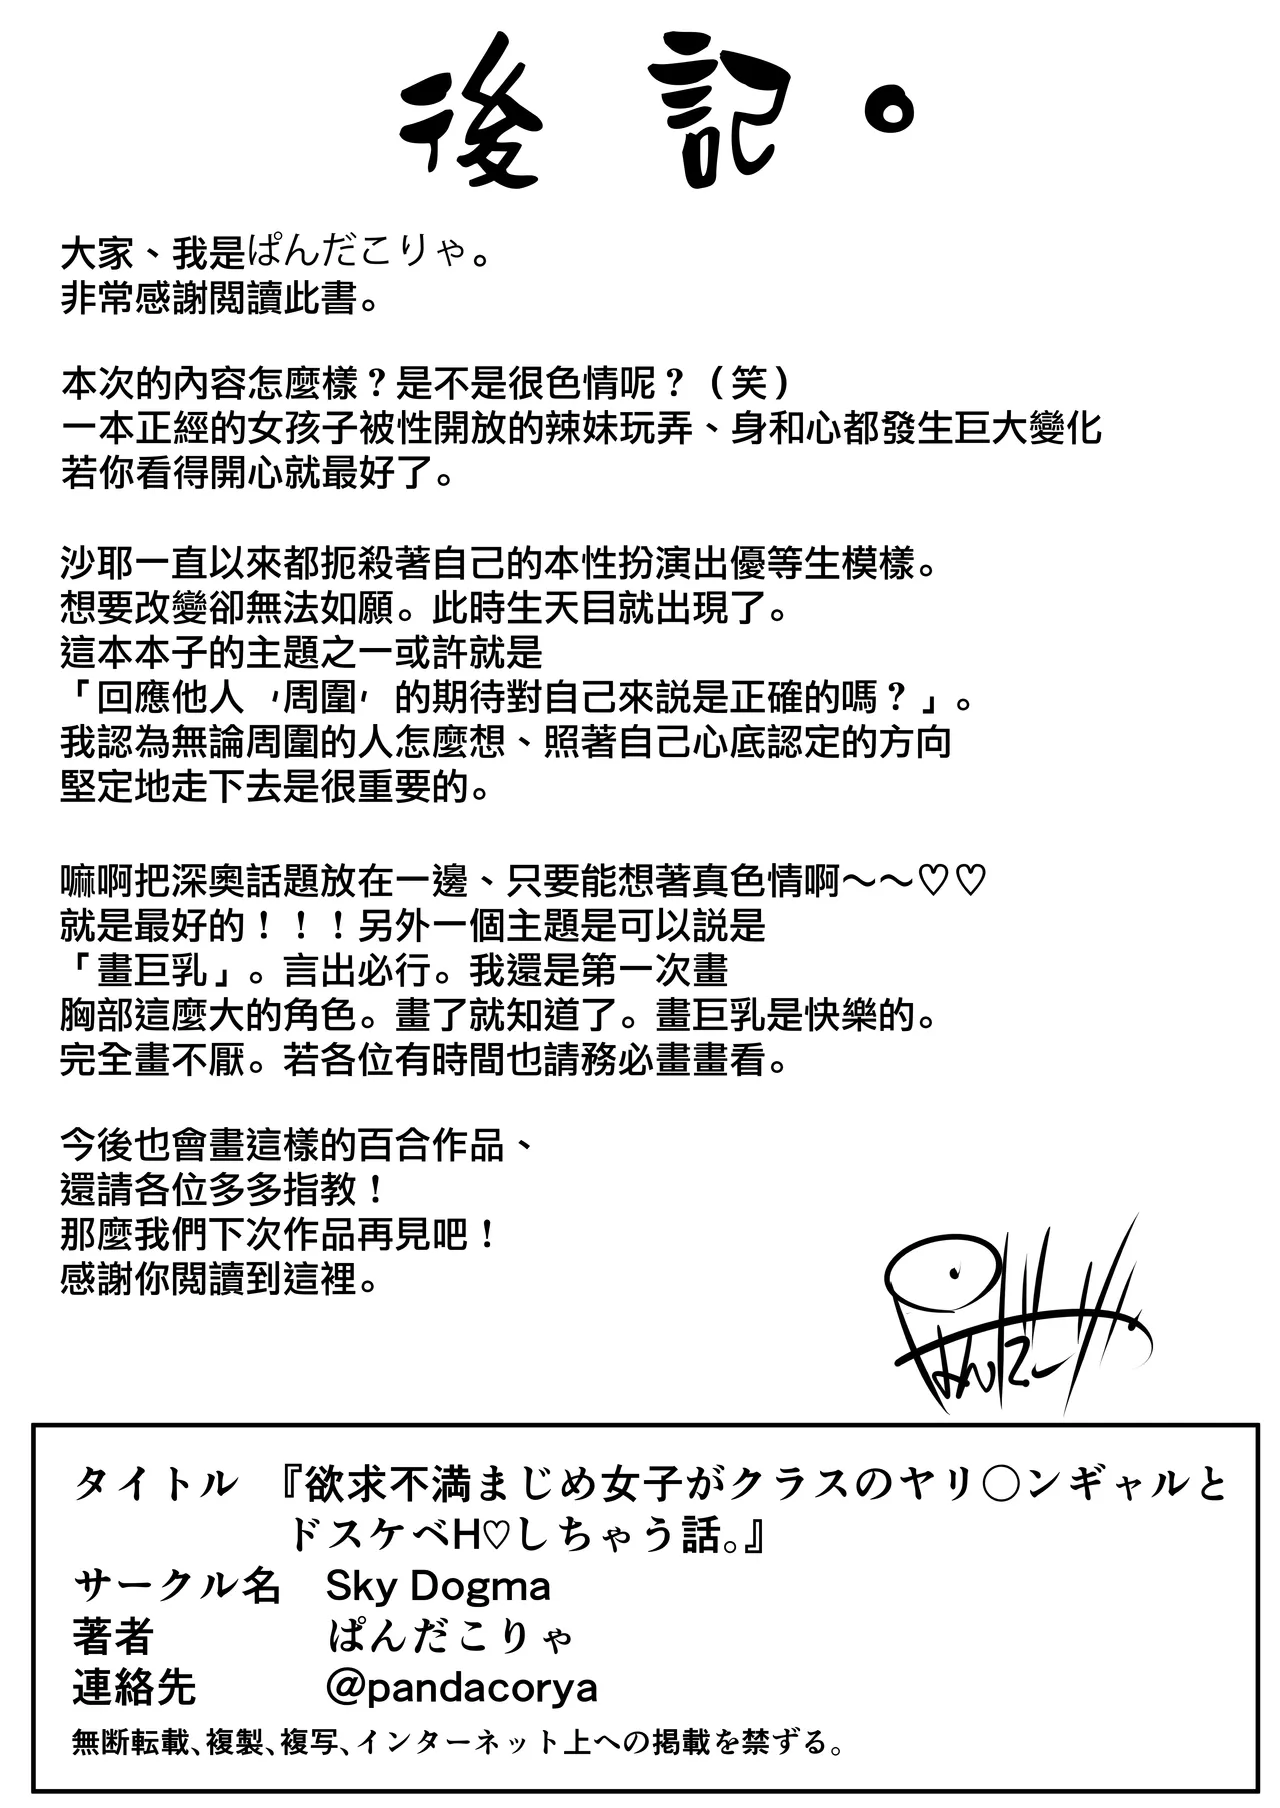 後記。
大家、我是ぱんだこりゃ。
非常感謝閱讀此書。
本次的內容怎麼樣？是不是很色情呢？（笑）
一本正經的女孩子被性開放的辣妹玩弄、身和心都發生巨大變化
若你看得開心就最好了。
沙耶一直以來都扼殺著自己的本性扮演出優等生模樣。
想要改變卻無法如願。此時生天目就出現了。
這本本子的主題之一或許就是
「回應他人‘周圍’的期待對自己來說是正確的嗎？」。
我認為無論周圍的人怎麼想、照著自己心底認定的方向
堅定地走下去是很重要的。
嘛啊把深奧話題放在一邊、只要能想著真色情啊～～♡♡
就是最好的！！！另外一個主題是可以說是
「畫巨乳」。言出必行。我還是第一次畫
胸部這麼大的角色。畫了就知道了。畫巨乳是快樂的。
完全畫不厭。若各位有時間也請務必畫畫看。
今後也會畫這樣的百合作品、
還請各位多多指教！
那麼我們下次作品再見吧！
感謝你閱讀到這裡。
タイトル 『欲求不満まじめ女子がクラスのヤリ〇ンギャルと
ドスケベH♡しちゃう話。』
サークル名 Sky Dogma
著者 ぱんだこりゃ
連絡先 @pandacorya
無断転載、複製、複写、インターネット上への掲載を禁ずる。